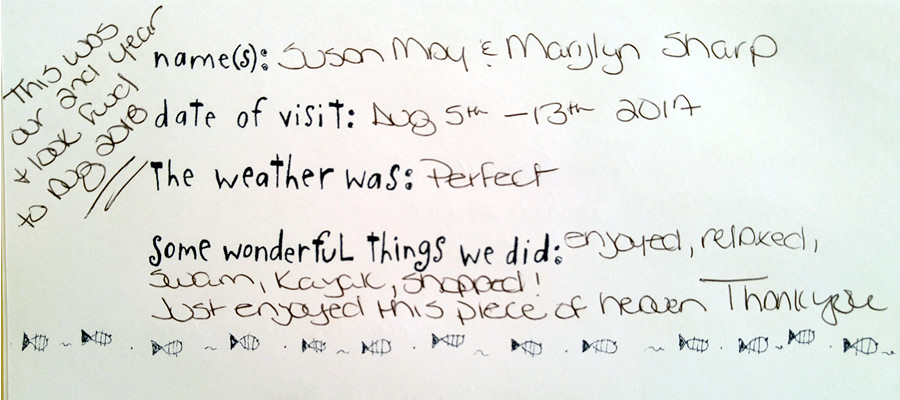 This was
our 2nd year
& look fwd
to Aug 2018
name(s): Susan May & Marijlyn Sharp
date of visit: Aug 5th - 13th 2017
The weather was: Perfect
some wonderful things we did: enjoyed, relaxed,
Swam, Kayak, shopped!
Just enjoyed this piece of heaven Thank you